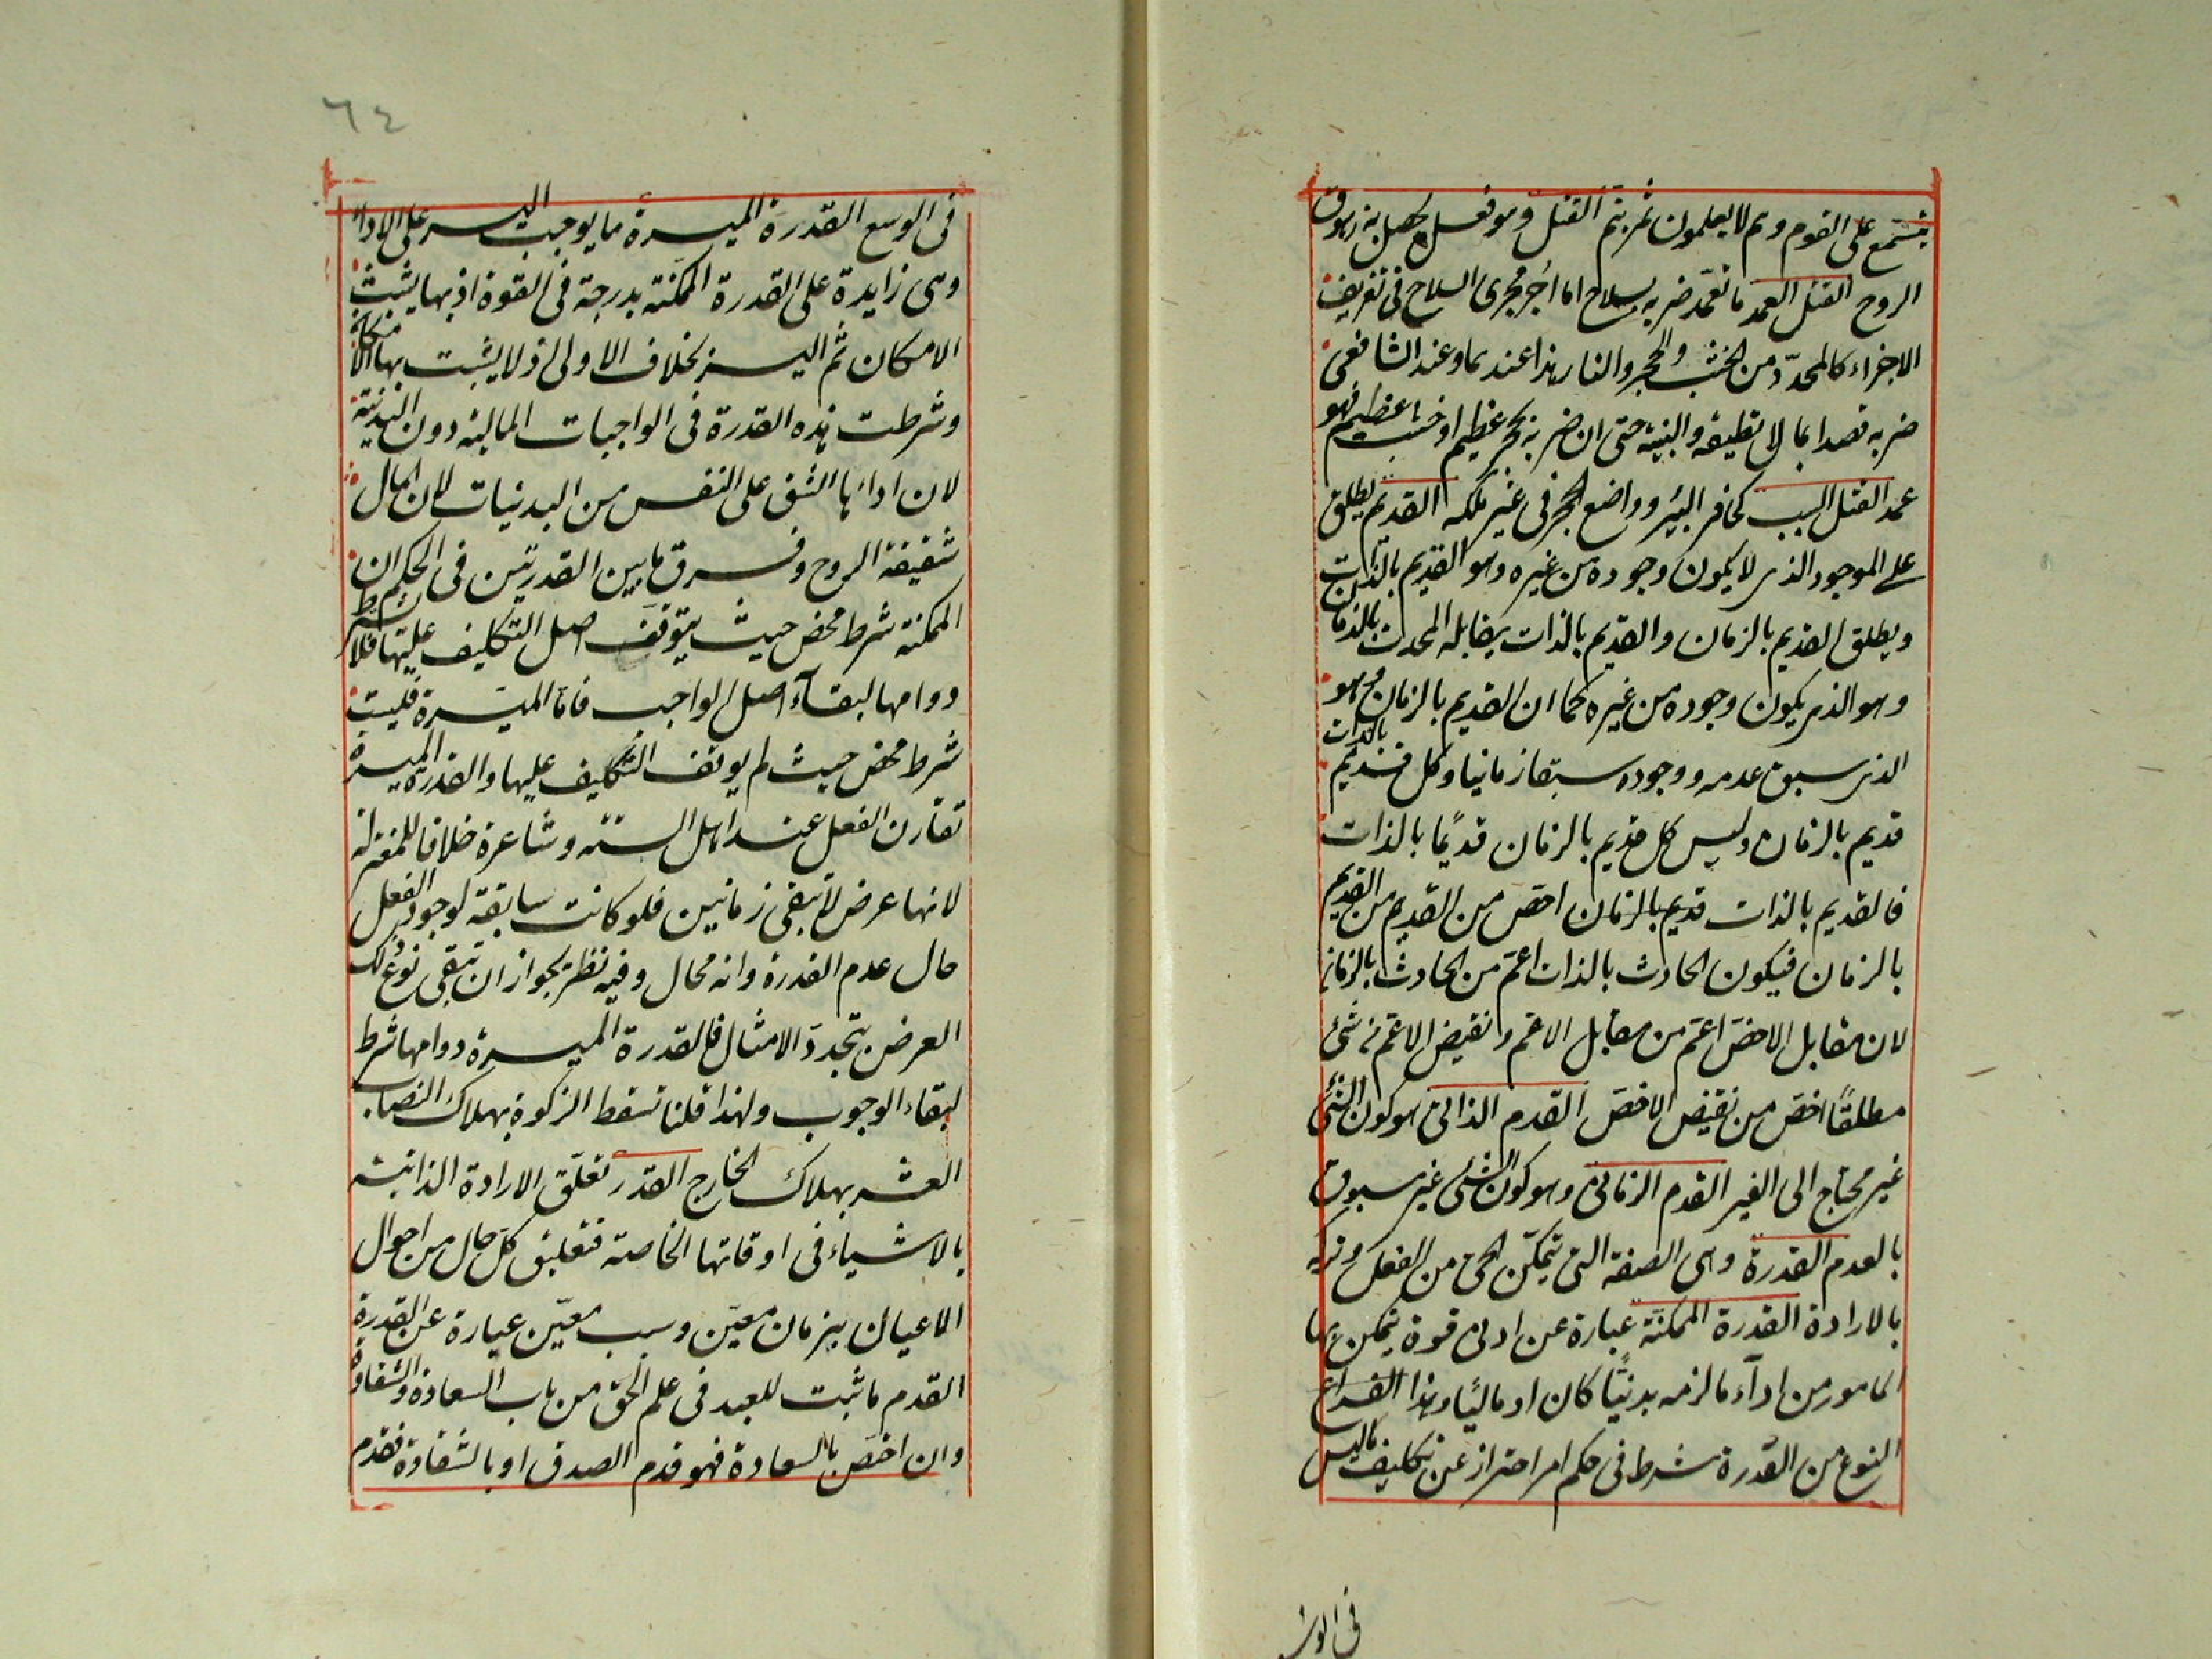 يتسمع على القوم وهم لا يعلمون ثم ينم القتل وهو فعل يحصل به زهوق
الروح القتل العمد ما تعمد ضربه بسلاح اما اجر مجرى السلاح فى تفريق
الاجزاء كالمحدد من الخشب والحجر والنار هذا عندهما وعند الشافعى
ضربه قصدا بما لا تطيقه والبنية حتى ان ضربه بحجر عظيم او خشب عظيم فهو
عمد القتل السبب كحافر البئر وواضع الحجر فى غير ملكه القديم يطلق
على الموجود الذى لا يكون وجوده من غيره وهو القديم بالذات
ويطلق القديم بالزمان والقديم بالذات يقابله المحدث بالذات
وهو الذى يكون وجوده من غيره كما ان القديم بالزمان هو
الذى سبق عدمه ووجوده سبقا زمانيا وكل قديم بالذات
قديم بالزمان وليس كل قديم بالزمان قديما بالذات
فالقديم بالذات قديم بالزمان اخص من القديم من القديم
بالزمان فيكون الحادث بالذات اعم من الحادث بالزمان
لان مقابل الاخص اعم من مقابل الاعم ونقيض الاعم من شئ
مطلقا اخص من نقيض الاخص القدم الذاتى هو كون الشئ
غير محتاج الى الغير القدم الزمانى وهو كون الشئ غير مسبوق
بالعدم القدرة وهى الصفة التى تمكن الحى من الفعل وتركه
بالارادة القدرة الممكنة عبارة عن ادنى قوة يتمكن بها
المامور من اداء ما لزمه بدنيا كان او ماليا وهذا
النوع من القدرة شرط فى حكم امر احتراز عن تكليف ما ليس
فى الوسع
٦٤
فى الوسع القدرة الميسرة ما يوجب اليسر على الاداء
وهى زايدة على القدرة الممكنة بدرجة فى القوة اذ بها يثبت
الامكان ثم اليسر بخلاف الاولى اذ لا يثبت بها الامكان
وشرطت هذه القدرة فى الواجبات المالية دون البدنية
لان اداءها اشق على النفس من البدنيات لان المال
شقيقة الروح وفرق ما بين القدرتين فى الحكم ان
الممكنة شرط محض حيث يتوقف اصل التكليف عليها فلا شرط
دوامها لبقاء اصل الواجب فاما الميسرة فليست
شرط محض حيث لم يوقف التكليف عليها والقدرة الميسرة
تقارن الفعل عند اهل السنة وشاعرة خلافا للمعتزلة
لانها عرض لا تبقى زمانين فلو كانت سابقة لوجود الفعل
حال عدم القدرة وانه محال وفيه نظر لجواز ان تبقى نوع ذلك
العرض بتجدد الامثال فالقدرة الميسرة دوامها شرط
لبقاء الوجوب ولهذا قلنا تسقط الزكوة بهلاك النصاب
العشر بهلاك الخارج القدر تعلق الارادة الذاتية
بالاشياء فى اوقاتها الخاصة فتعليق كل حال من احوال
الاعيان بزمان معين وسبب معين عبارة عن القدرة
القدم ما ثبت للعبد فى علم الحق من باب السعادة والشقاوة
وان اختص بالسعادة فهو قدم الصدق او بالشقاوة فقدم